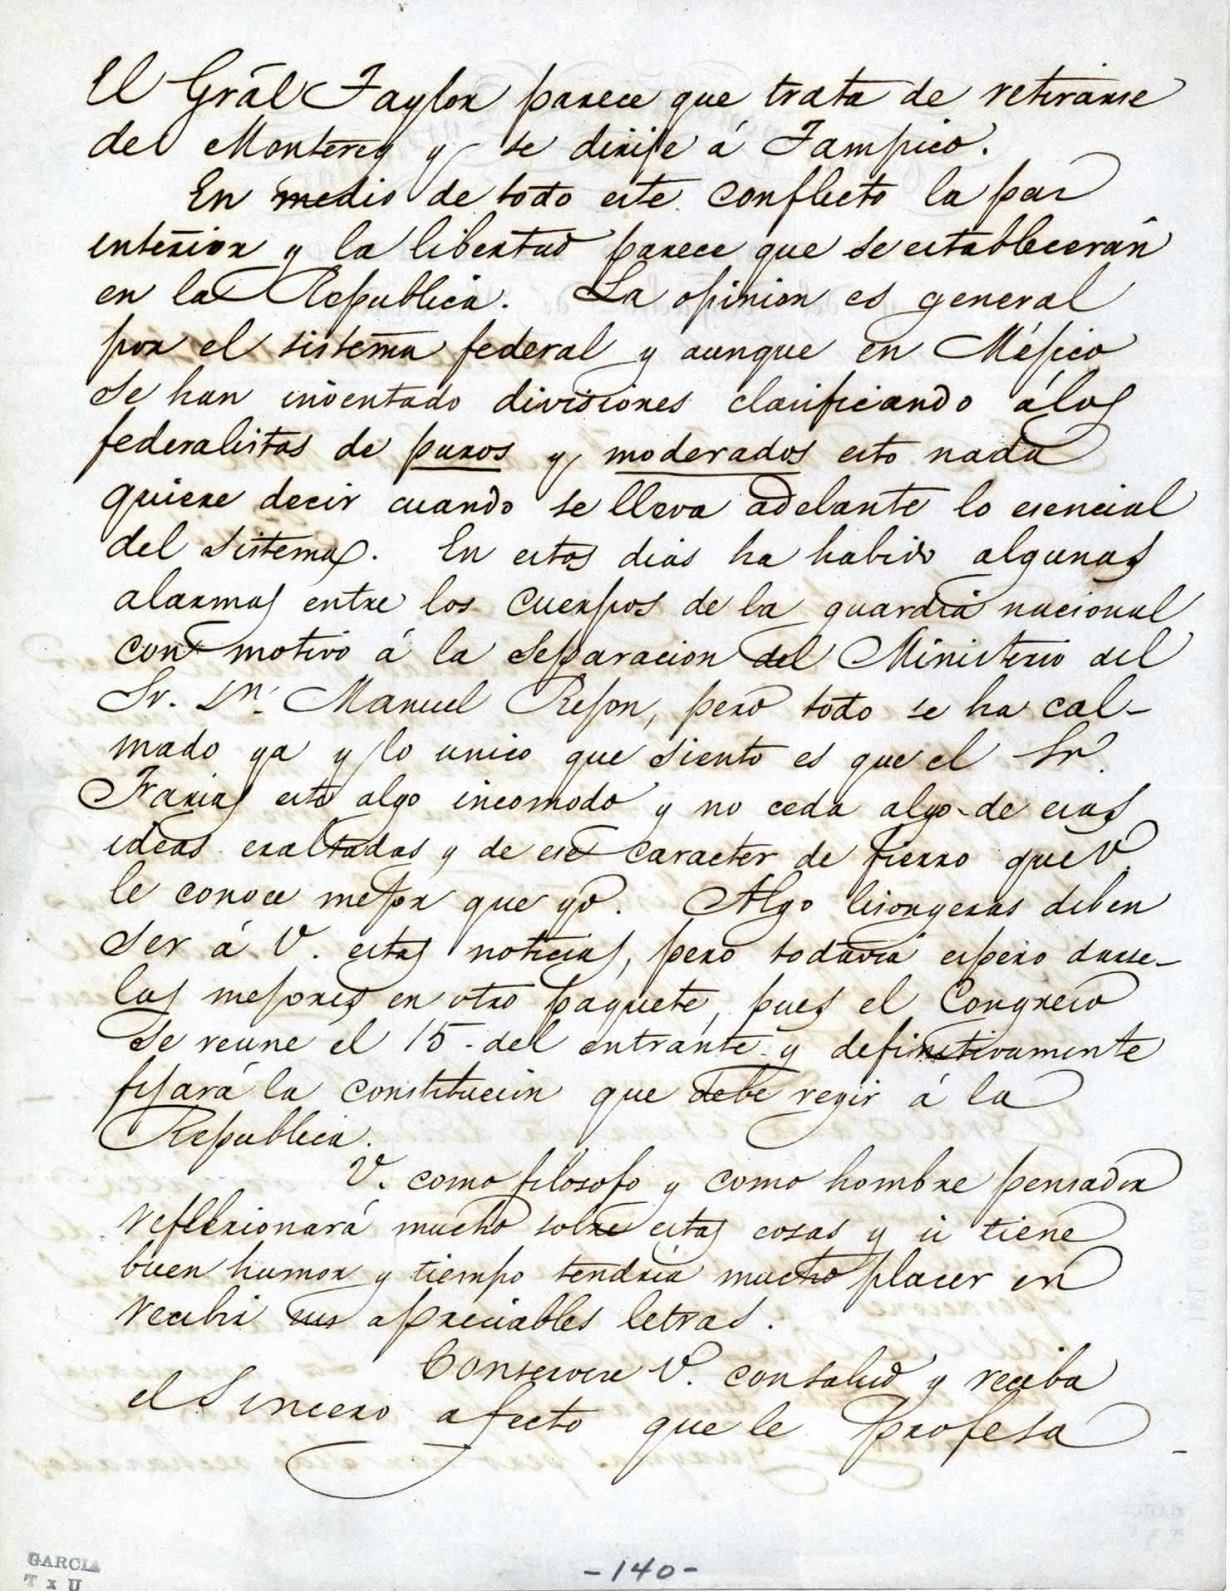 El Grāl Taylor parece que trata de retirarse
del Monterey y se dirije á Tampico.
En medio de todo este conflicto la paz
interior y la libertad parece que se establecerán
en la Republica. La opinion es general
por el sistema federal y aunque en Méjico
se han inventado divisiones clasificando á los
federalistas de puros y moderados esto nada
quiere decir cuando se lleva adelante lo esencial
del sistema. En estos dias ha habido algunas
alarmas entre los cuerpos de la guardia nacional
con motivo á la separacion del Ministerio del
Sr. Dn. Manuel Rejon, pero todo se ha cal-
mado ya y lo unico que siento es que el Sr.
Farias esta algo incomodo y no ceda algo de esas
ideas exaltadas y de ese caracter de fierro que V.
le conoce mejor que yo. Algo lisongeras deben
ser á V. estas noticias, pero todavia espero darse-
las mejores en otro paquete, pues el Congreso
se reune el 15 - del entrante y definitivamente
fijará la constitucion que debe regir á la
Republica.
V. como filosofo y como hombre pensador
reflexionará mucho sobre estas cosas y si tiene
buen humor y tiempo tendria mucho placer en
recibir sus apreciables letras.
Conserve V. con salud y reciba
el sincero afecto que le profesa
GARCIA
T x U
-140-